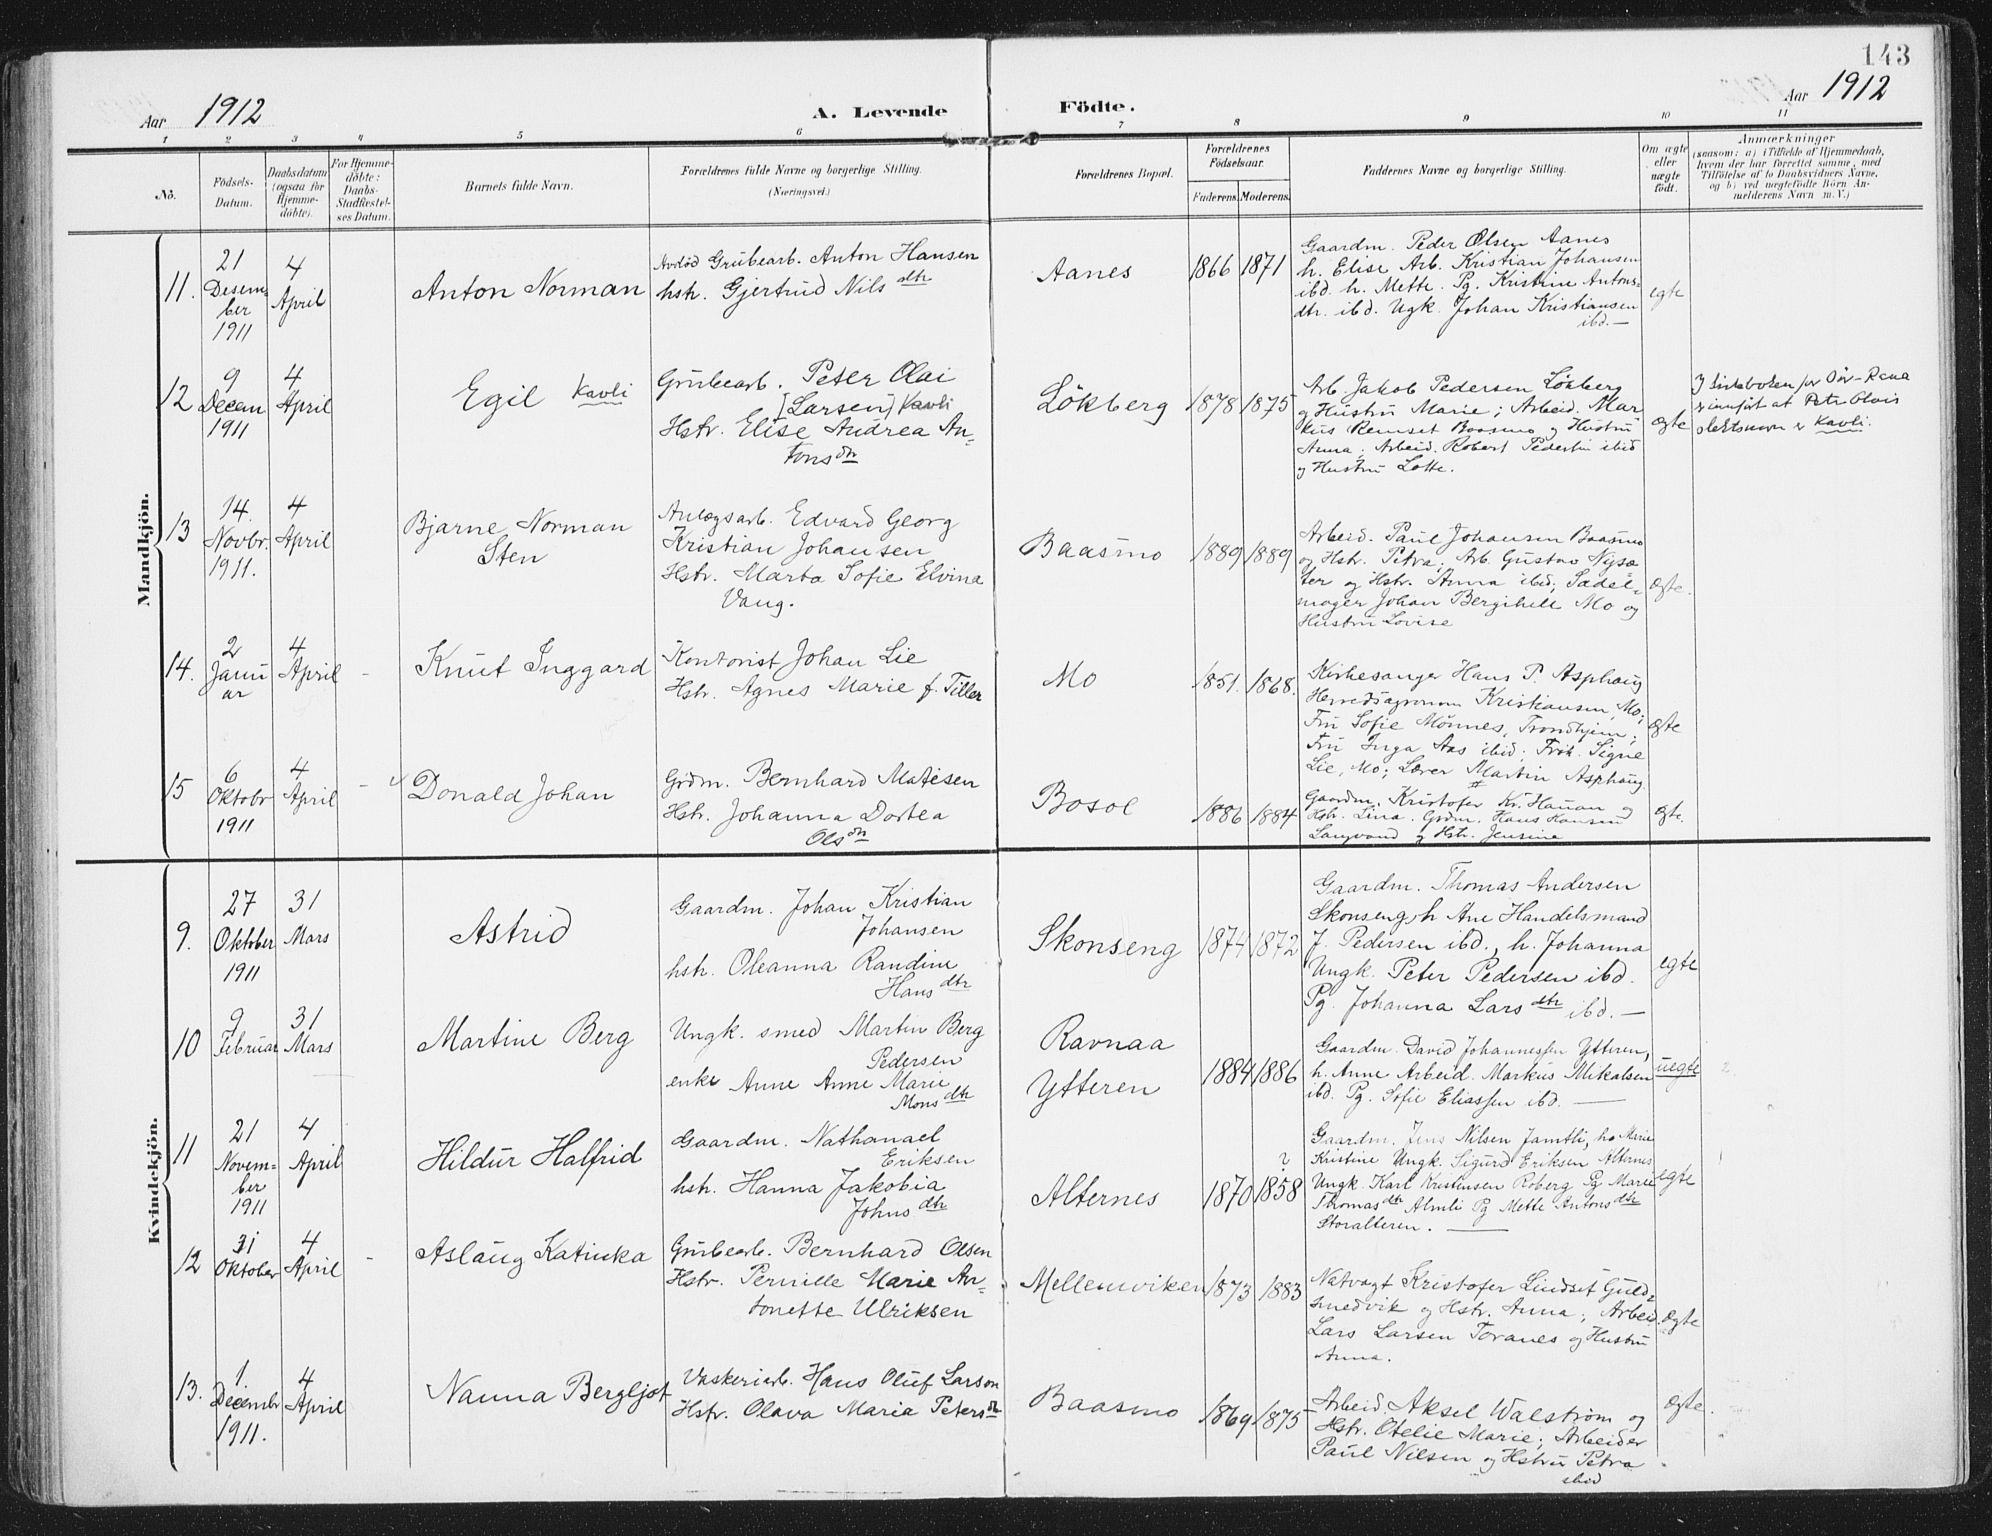 143
Aar 1912
A. Levende Födte.
Aar 1912
1 2 3 4 5 6 7 8 9 10 11
No.
Födsels-Datum.
Daabsdatum (ogsaa for Hjemme-döbte).
For Hjemme-döbte: Daabs-Stadfæstel-ses Datum.
Barnets fulde Navn.
Forældrenes fulde Navne og borgerlige Stilling.
(Næringsvei.)
Forældrenes Bopæl.
Forældrenes Födselsaar.
Faderens. Moderens.
Faddernes Navne og borgerlige Stilling.
Om ægte eller uægte födt.
Anmærkninger
(saasom: a) i Tilfælde af Hjemmedaab,
hvem der har forrettet samme, med
Tilföielse af to Daabsvidners Navne,
og b) ved uægtefödte Börn An-
melderens Navn m. V.)
Mandkjön.
11. 21 Desember 1911
4 April
Anton Norman
Avdöd Grubearb. Anton Hansen
hstr. Gjertrud Nilsdtr
Aanes
1866 1871
Gaardm. Peder Olsen Aanes
h. Elise Arb. Kristian Johansen
ibd. h. Mette. Pg. Kristine Antons-
dtr. ibd. Ugk. Johan Kristiansen
ibd. —
egte
12 9 Decem 1911
4 April
Egil Kavli
Grubearb. Peter Olai
[Larsen] Kavli
Hstr. Elise Andrea An-
tonsdtr
Lökberg
1878 1875
Arb. Jakob Pedersen Lökberg
og Hustru Marie; Arbeid. Mar
kus Remset Baasmo og Hustru
Anna; Arbeid. Robert Pedersen ibid
og Hustru Lotte.
ægte
I kirkeboken for Nör-Rana
er innfört at Peter Olais
slektsnavn er Kavli.
13 14. Novbr. 1911.
4 April
Bjarne Norman
Sten
Anlægsarb. Edvard Georg
Kristian Johansen
Hstr. Marta Sofie Elvina
Vang.
Baasmo
1889 1889
Arbeid. Paul Johansen Baasmo
og Hstr. Petra; Arb. Gustav Nysæ
ter og Hstr. Anna ibid; Sadel-
mager Johan Mo og
Hustru Lovise
ægte.
14. 2 Januar
4 April -
Knut Inggard
Kontorist Johan Lie
Hstr. Agnes Marie f. Tiller
Mo
1851. 1868.
Kirkesanger Hans P. Asphaug
Herredsagronom Kristiansen, Mo;
Fru Sofie Mönnes, Trondhjem;
Fru Inga Aas ibid; Frök. Signe
Lie, Mo; Lærer Martin Asphaug
ægte
15 6 Oktobr 1911
4 April -
Donald Johan
Grdm. Bernhard Matisen
Hstr. Johanna Dortea
Olsdtr
Bosoe
1886 1884
Gaardm. Kristofer Kr. Hauan og
Hstr. Lina. Grdm. Hans Hansen
Langvand og Hstr. Jensine
ægte.
Kvindekjön.
9. 27 Oktober 1911
31 Mars
Astrid
Gaardm. Johan Kristian
Johansen
hstr. Oleanna Randine
Hansdtr
Skonseng
1874 1872
Gaardm. Thomas Andersen
Skonseng, h Ane Handelsmand
J. Pedersen ibd., h. Johanna
Ungk. Peter Pedersen ibd.
Pg. Johanna Larsdtr ibd. —
egte
10 9 Februar
31 Mars
Martine Berg
Ungk. smed Martin Berg
Pedersen
enke Anne Anne Marie
Monsdtr
Ravnaa
Ytteren
1884 1886
Gaardm. David Johannessen Ytteren,
h. Anne Arbeid. Markus Mikalsen
ibd. Pg. Sofie Eliassen ibd. —
uegte
11 21 November 1911
4 April
Hildur Halfrid
Gaardm. Nathanael
Eriksen
hstr. Hanna Jakobia
Johnsdtr
Alternes
1870 1858 ?
Gaardm. Jens Nilsen Jamtli, h. Marie
Kristine Ungk. Sigurd Eriksen Alternes
Ungk. Karl Kristensen Roberg Pg Marie
Thomasdtr Almli Pg Mette Antonsdtr
Storalteren. —
egte
12 31 Oktober
4 April -
Aslaug Katinka
Grubearb. Bernhard Olsen
Hstr. Pernille Marie An-
tonette Ulriksen
Mellemviken
1873 1883
Natvagt Kristofer Lindset Guld-
smedvik og Hstr. Anna; Arbeid.
Lars Larsen Toranes og Hustru
Anna.
ægte
13. 1. Decembr 1911.
4 April
Nanna Bergljot
Vaskeriarb. Hans Oluf Larsen
Hstr. Olava Maria Petersdtr
Baasmo
1869 1875
Arbeid. Aksel Walström og
Hstr. Otelie Marie; Arbeider
Paul Nilsen og Hstru Petra
ibid
ægte.